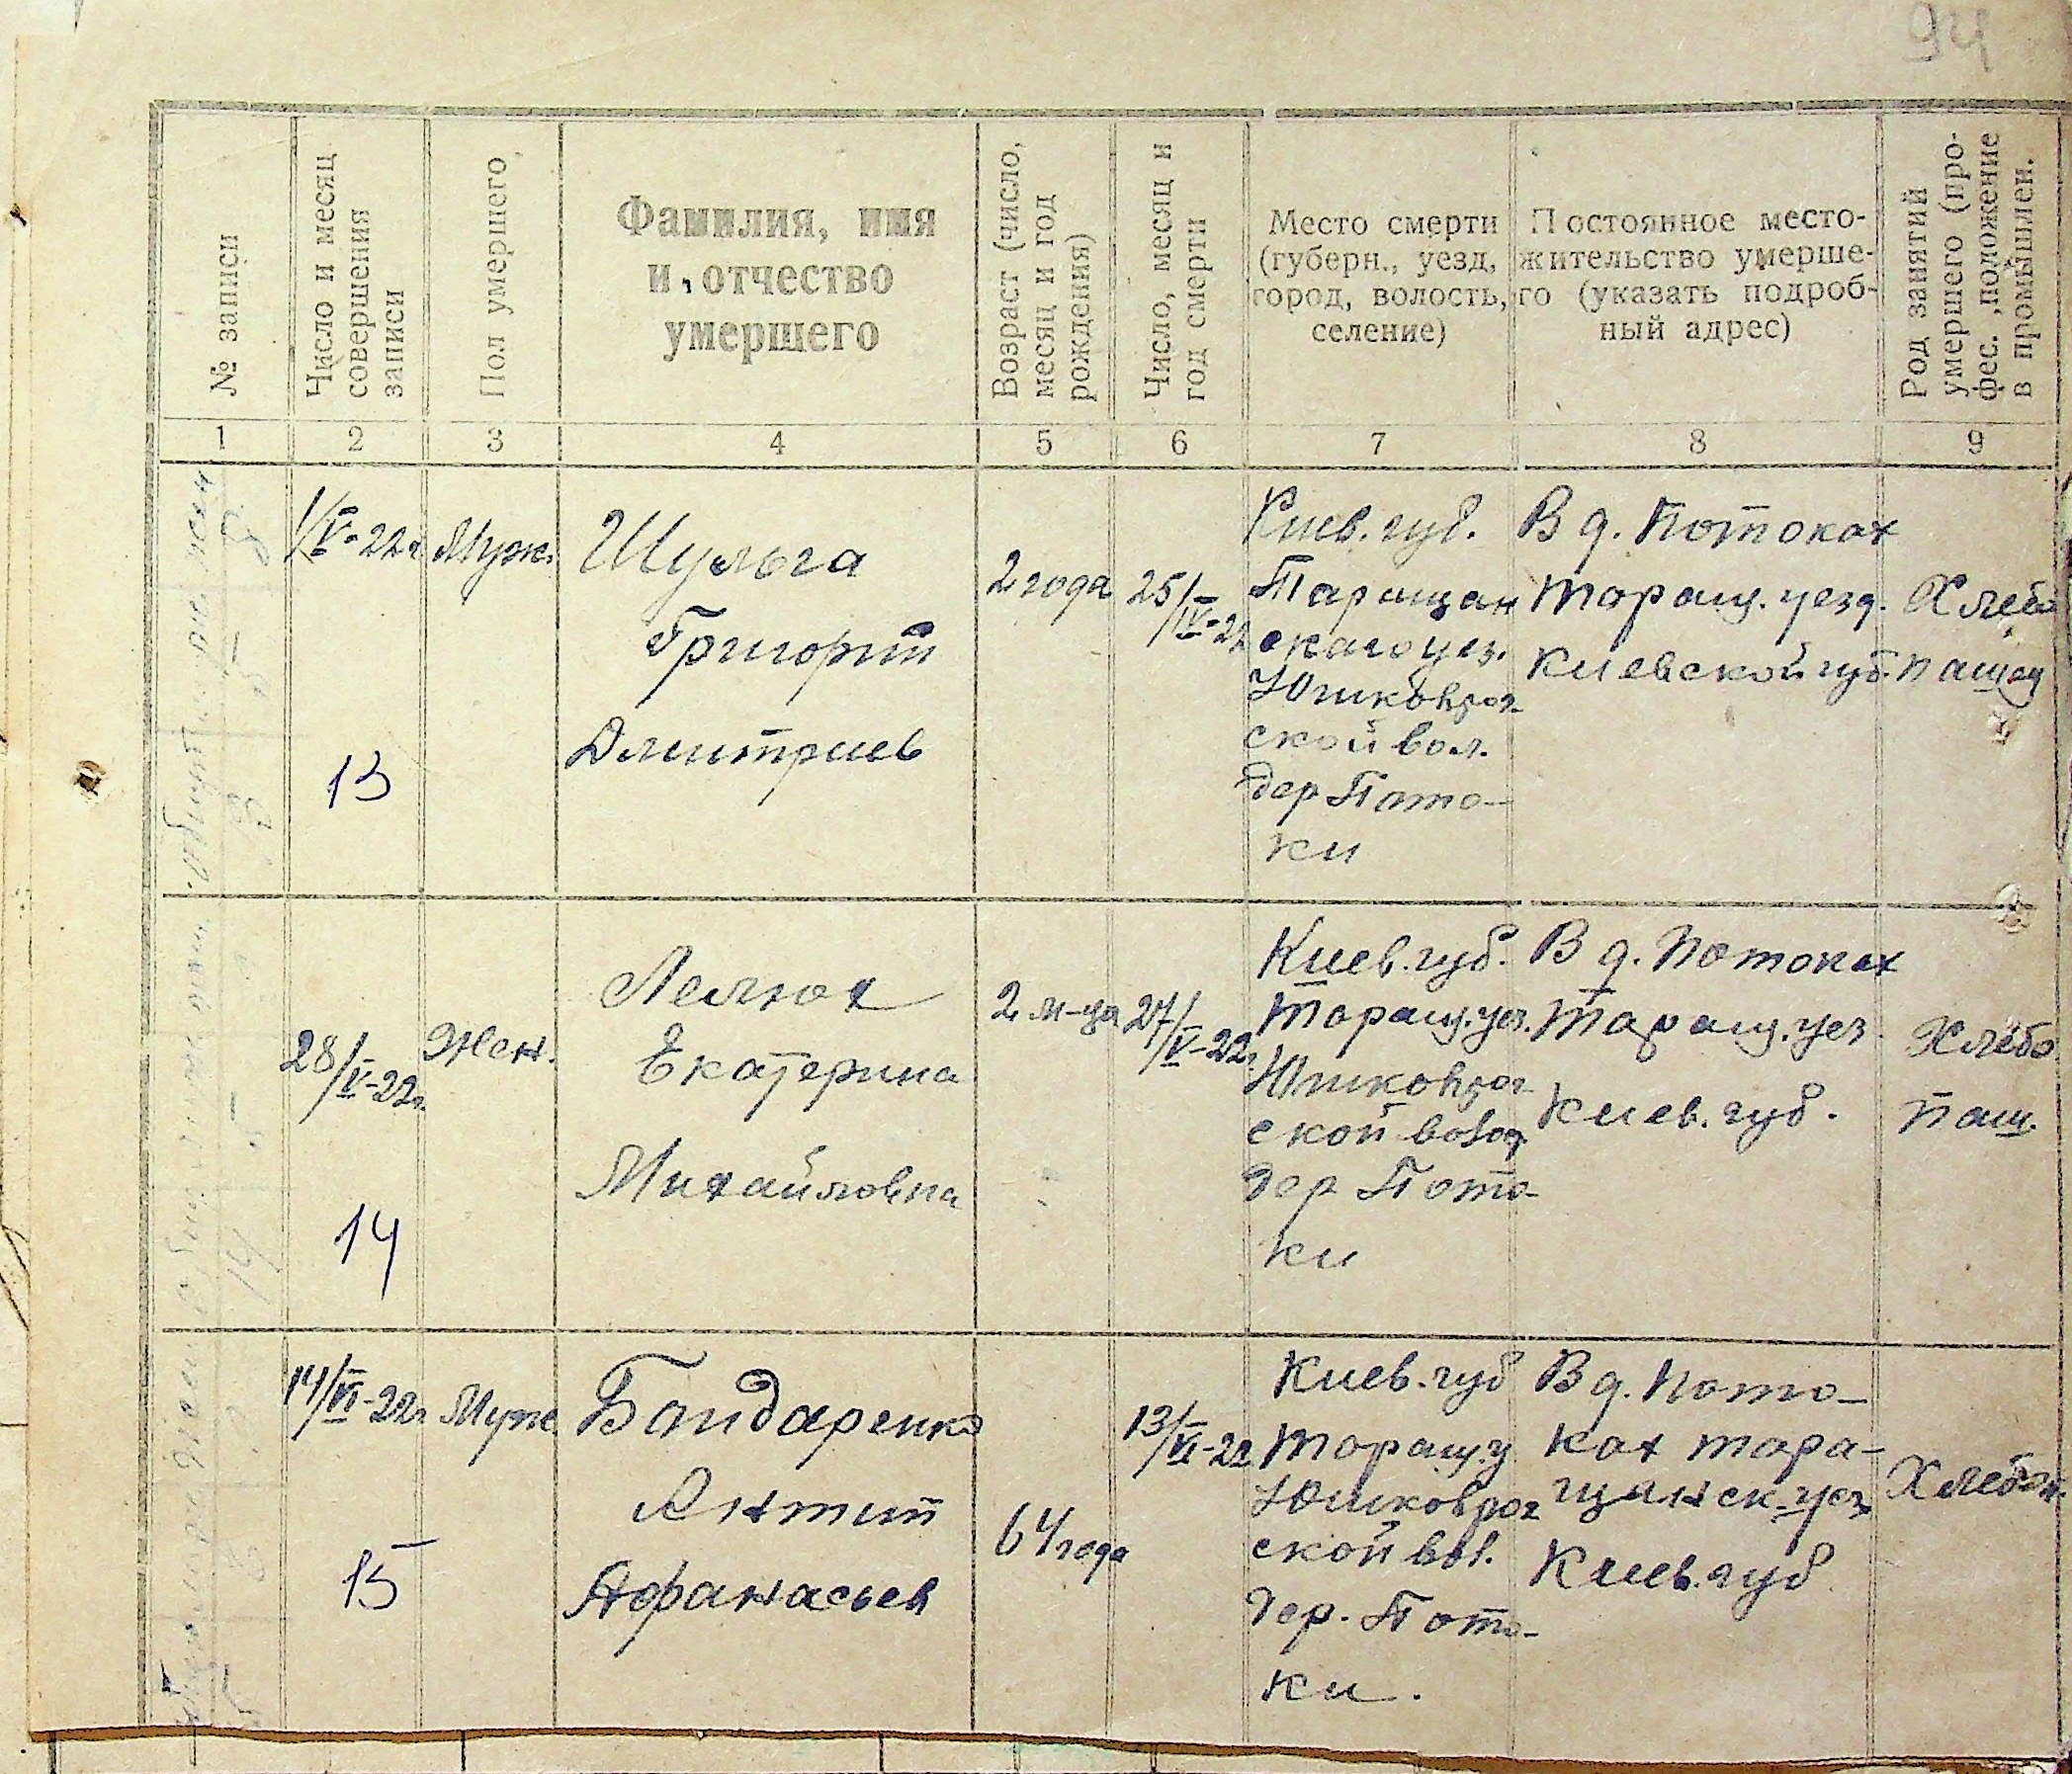 94
№ записи
Число и месяц
совершения
записи
Пол умершего
Фамилия, имя
и отчество
умершего
Возраст (число,
месяц и год
рождения)
Число, месяц и
год смерти
Место смерти
(губерн., уезд,
город, волость,
селение)
Постоянное место-
жительство умерше-
го (указать подроб-
ный адрес)
Род занятий
умершего (про-
фес., положение
в промышлен.
1 2 3 4 5 6 7 8 9
1/V-22г.
13
Муж.
Шульга
Григорий
Дмитриев
2 года
25/IV-22
Киев. губ.
Таращан
скаго уез.
Юшковрог
ской вол.
дер Пото-
ки
В д. Потоках
Таращ. уезд.
Киевской губ.
Хлебо
пашец
28/V-22г.
14
Жен.
Лелюх
Екатерина
Михайловна
2 м-ца
27/V-22г.
Киев. губ.
Таращ. уез.
Юшковрог
ской волос
дер Пото-
ки
В д. Потоках
Таращ. уез
Киев. губ.
Хлебо
паш.
14/VI-22г
15
Муж
Бондаренко
Антип
Афанасьев
64 года
13/VI-22
Киев. губ
Таращ. у
Юшковрог
ской вол.
дер. Пото-
ки.
В д. Пото-
ках Тара-
щанск. уез
Киев. губ
Хлебоп.